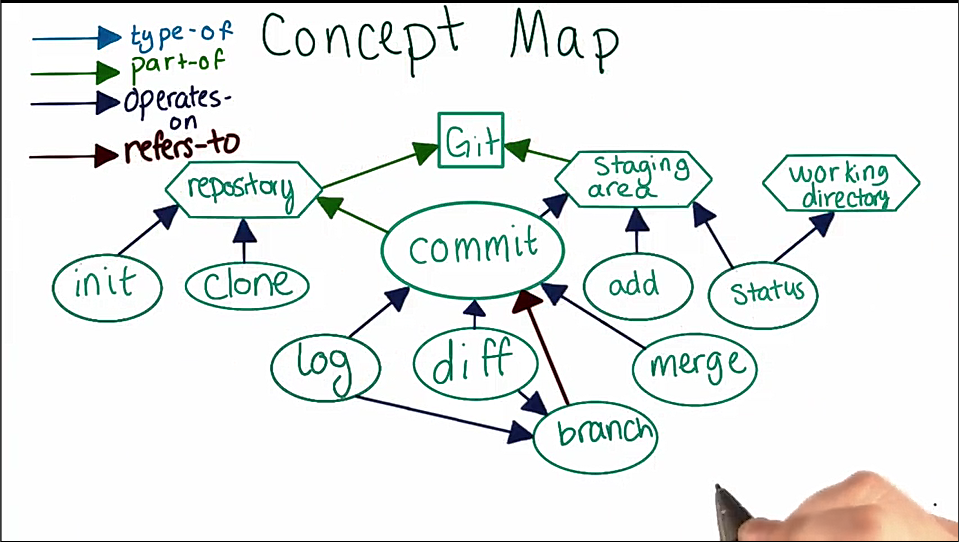 type-of
Concept Map
part-of
operates-
on
refers-to
Git
repository
Staging
area
working
directory
commit
init
clone
add
Status
log
diff
merge
branch